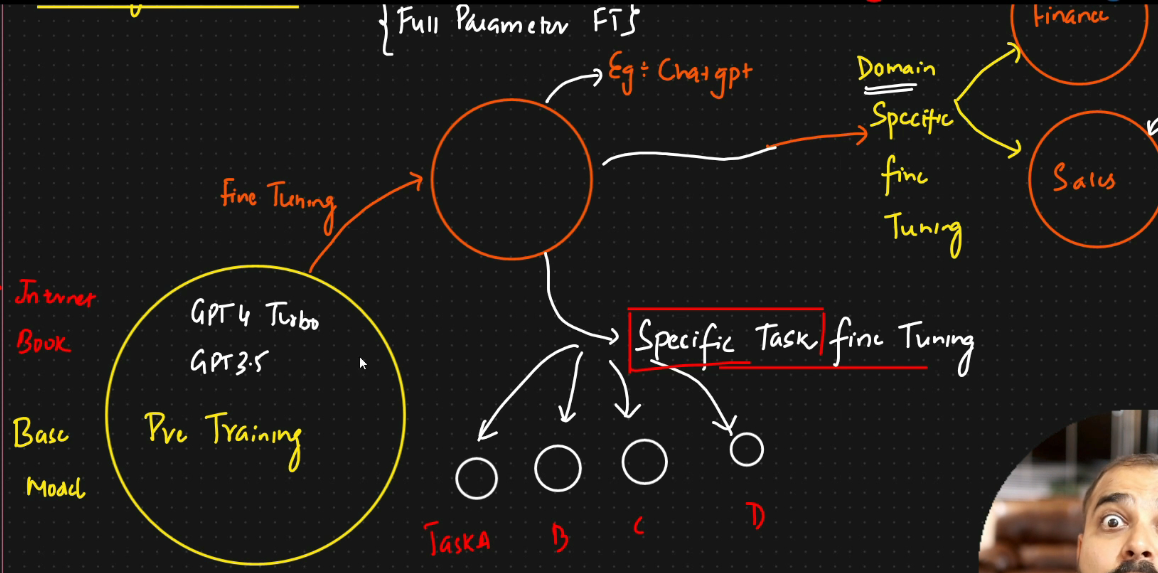 {Full Parameter FT}
Eg: Chatgpt
Finance
Domain
Specific
fine
Tuning
Sales
Fine Tuning
Internet
Book
GPT4 Turbo
GPT3.5
Pre Training
Base
Model
Specific Task fine Tuning
Task A
B
C
D